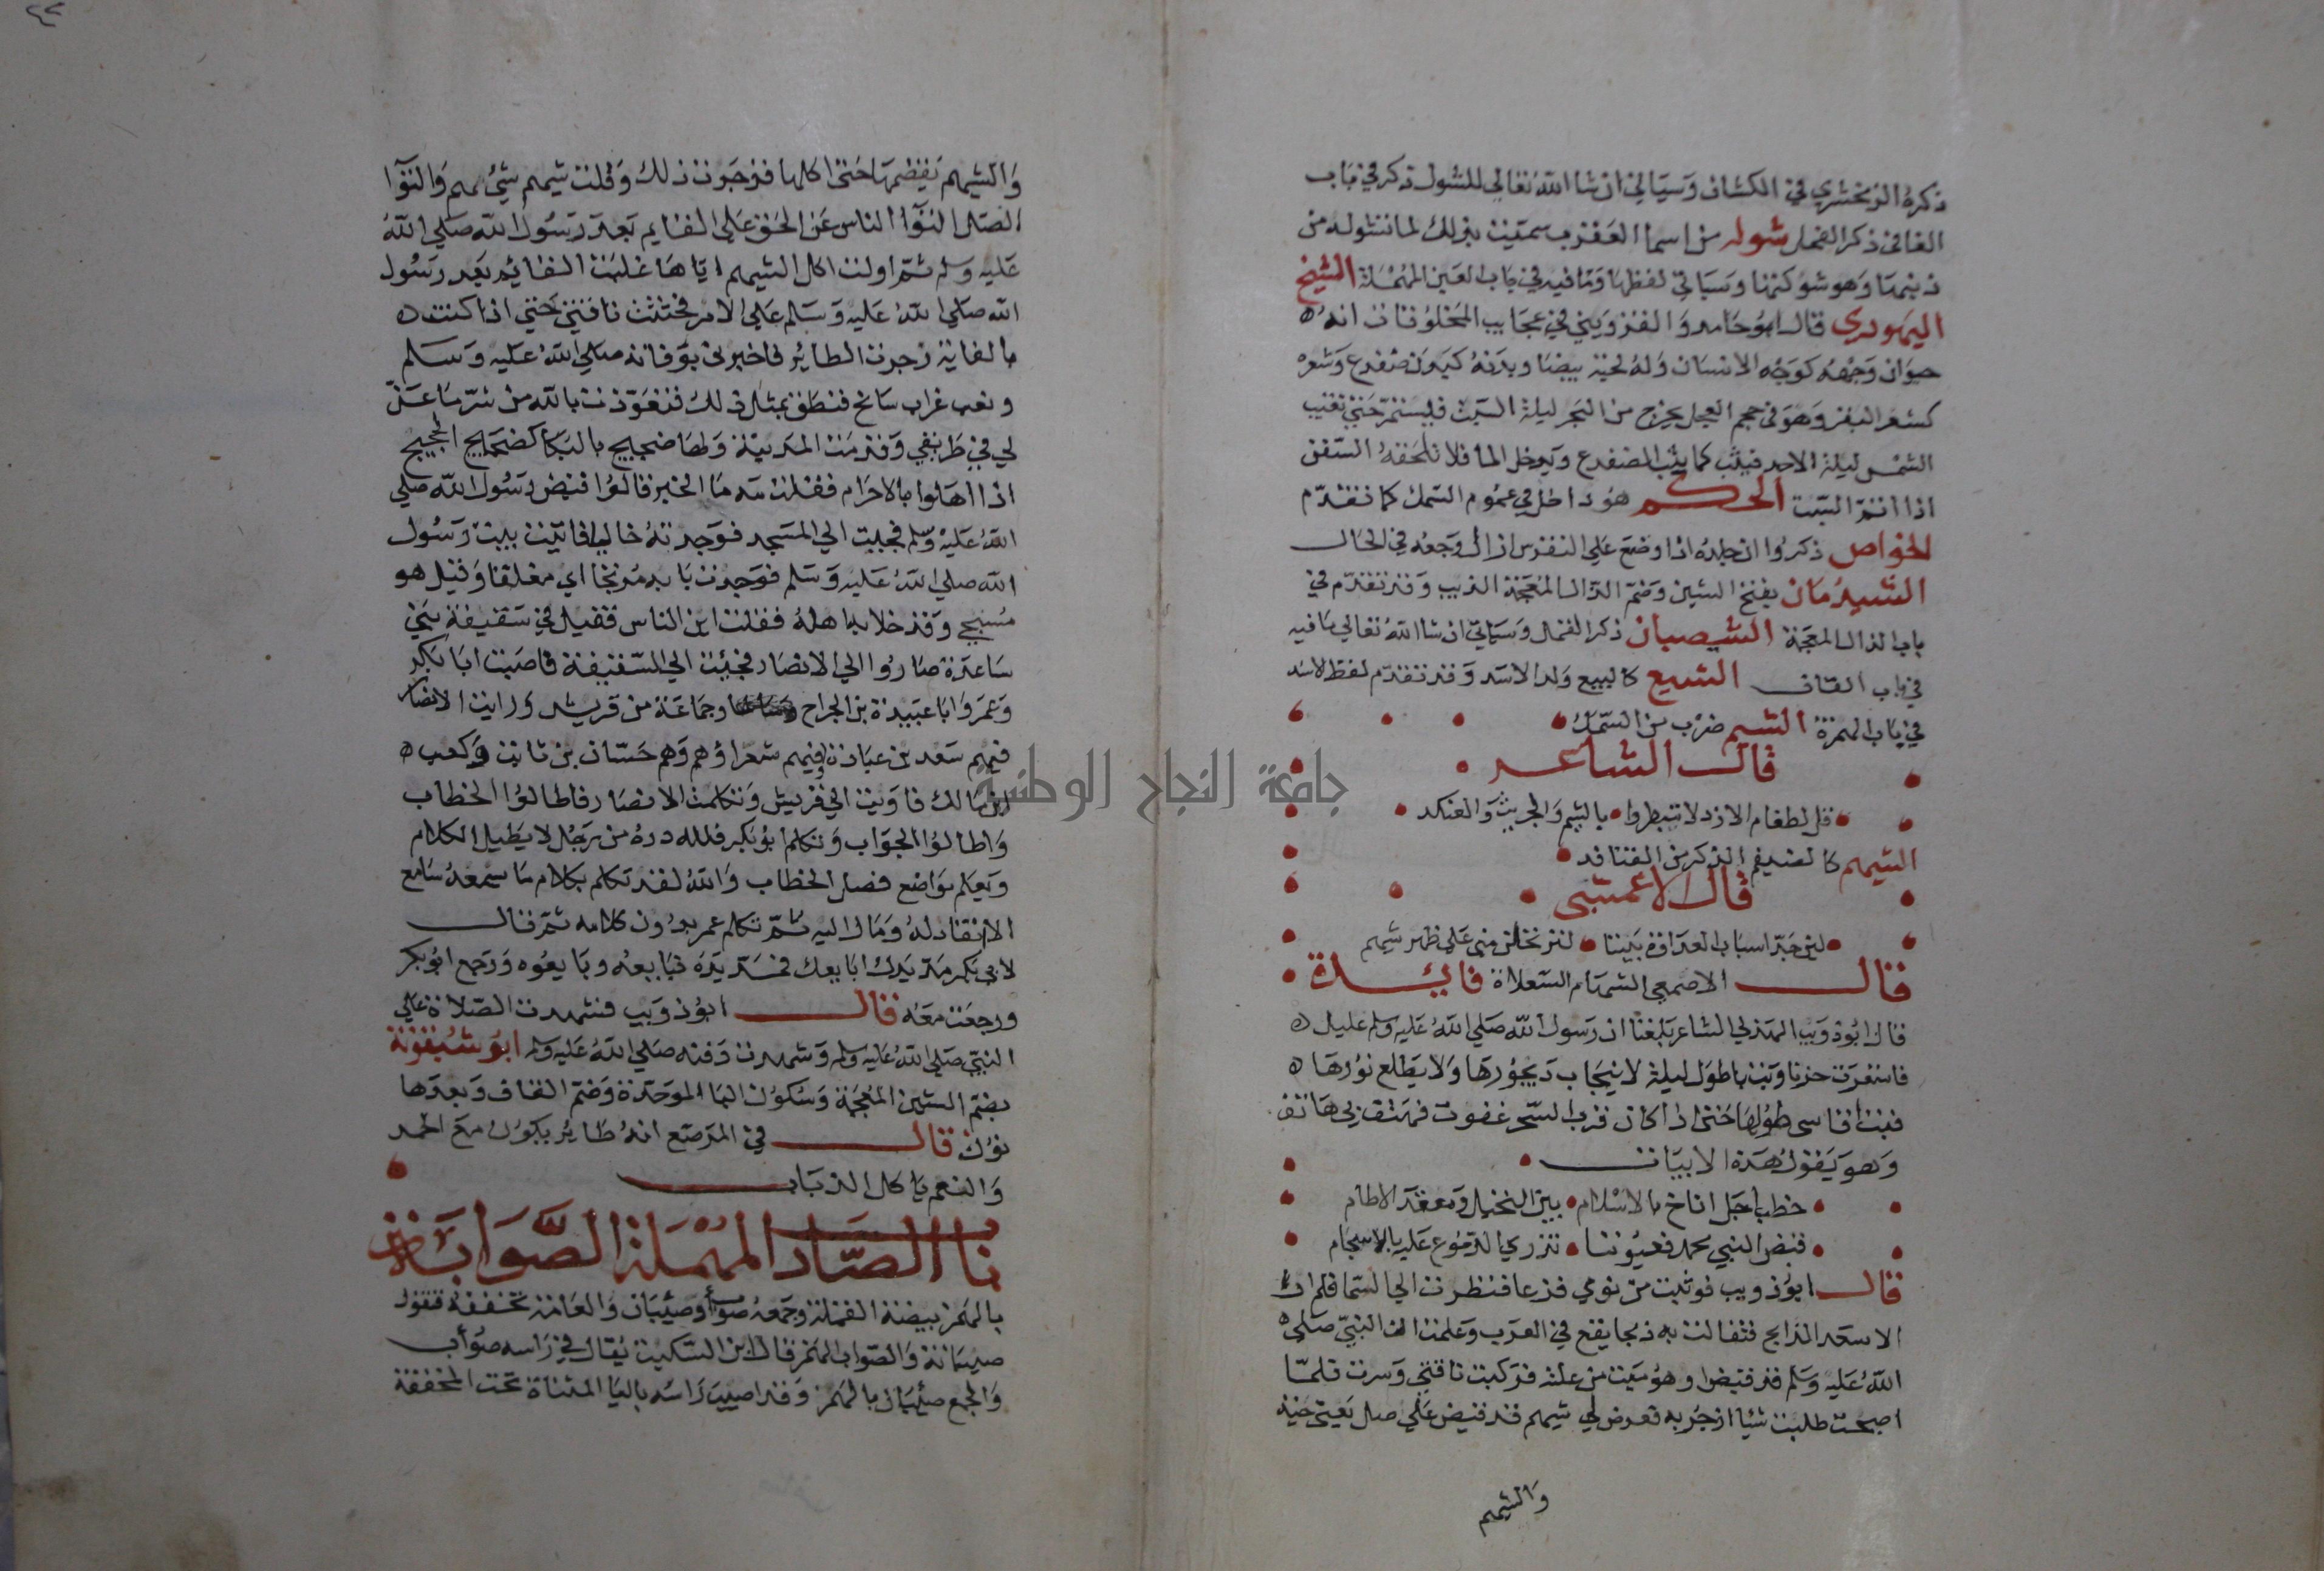 ذكره الزمخشري في الكشاف وسياتي ان شا الله تعالى للشول ذكر في باب
الفا في ذكر الفحل شوله من اسما العقرب سميت بذلك لما تشوله من
ذنبها وهو شوكتها وسياتي لفظها وما فيه في باب العين المهملة الشيخ
اليهودي قال ابو حامد والقزويني في عجايب المخلوقات انه
حيوان وجهه كوجه الانسان وله لحية بيضا وبدنه كبدن ضفدع وشعره
كشعر البقر وهو في حجم العجل يخرج من البحر ليلة السبت فيستمر حتى تغيب
الشمس ليلة الاحد فيثب كما يثب الضفدع ويدخل الما فلا تلحقه السفن
اذا انتم السبت الحكم هو داخل في عموم السمك كما تقدم
الخواص ذكروا ان جلده اذا وضع على النقرس ازال وجعه في الحال
الشيذمان بفتح الشين وضم الذال المعجمة الذيب وقد تقدم في
باب الذال المعجمة الشيصبان ذكر النمل وسياتي ان شا الله تعالى ما فيه
في باب القاف الشيع كالبيع ولد الاسد وقد تقدم لفظ الاسد
في باب الهمزة الشيم ضرب من السمك
قال الشاعر
قل لطغام الازد لا تبطروا بالشيم والجريث والعنكد
الشيهم كالضيغم الذكر من القنافد
قال الاعشى
لئن جد اسباب العداوة بيننا لترتحلن مني على ظهر شيهم
فقال الاصمعي الشهام السعلاة فايدة
قال ابو ذويب الهذلي الشاعر بلغنا ان رسول الله صلى الله عليه وسلم عليل
فاستفرت حزنا وبت باطول ليلة لا ينجاب ديجورها ولا يطلع نورها
فبت اقاسي طولها حتى اذا كان قرب السحر غفوت فهتف بي هاتف
وهو يقول هذه الابيات
خطب اجل اناخ بالاسلام بين النخيل ومعقد الاطام
قبض النبي محمد فعيوننا تذري الدموع عليه بالاسجام
قال ابو ذويب فوثبت من نومي فزعا فنظرت الى السما فلم ار
الا سعد الذابح فتفالت به ذبحا يقع في العرب وعلمت ان النبي صلى
الله عليه وسلم قد قبض او هو ميت من علته فركبت ناقتي وسرت فلما
اصبحت طلبت شيا ازجر به فعرض لي شيهم قد قبض على صل يعني حية
والشيهم
والشيهم يقضمها حتى اكلها فزجرت ذلك وقلت شيهم شيء مهم والتوا
الصل التوا الناس عن الحق على القايم بعد رسول الله صلى الله
عليه وسلم ثم اولت اكل الشيهم اياها غلبت القائم بعد رسول
الله صلى الله عليه وسلم على الامر فحثثت ناقتي حتى اذا كنت
بالغابة زجرت الطائر فاخبرني بوفاته صلى الله عليه وسلم
ونعب غراب سانح فنطق بمثل ذلك فتعوذت بالله من شر ما عن
لي في طريقي وقدمت المدينة ولها ضجيج بالبكا كضجيج الحجيج
اذا اهلوا بالاحرام فقلت مه ما الخبر قالوا قبض رسول الله صلى
الله عليه وسلم فجيت الى المسجد فوجدته خاليا فاتيت بيت رسول
الله صلى الله عليه وسلم فوجدت بابه مرتجا اي مغلقا وقيل هو
مسجى وقد خلا به اهله فقلت اين الناس فقيل في سقيفة بني
ساعدة صاروا الى الانصار فجئت الى السقيفة فاصبت ابا بكر
وعمر وابا عبيدة بن الجراح وجماعة من قريش ورايت الانصار
فيهم سعد بن عبادة وفيهم شعراؤهم وهم حسان بن ثابت وكعب
ابن مالك فاويت الى قريش وتكلمت الانصار فاطالوا الخطاب
واطالوا الجواب وتكلم ابو بكر فلله دره من رجل لا يطيل الكلام
ويعلم مواضع فصل الخطاب والله لقد تكلم بكلام ما سمعه سامع
الا انقاد له ومال اليه ثم تكلم عمر بدون كلامه ثم قال
لابي بكر مد يدك ابايعك فمد يده فبايعه وبايعوه ورجع ابو بكر
ورجعت معه فقال ابو ذويب فشهدت الصلاة على
النبي صلى الله عليه وسلم وشهدت دفنه صلى الله عليه وسلم ابو شبقونة
بضم الشين المعجمة وسكون البا الموحدة وضم القاف وبعدها
نون قال في المرصع انه طاير يكون مع الحمر
والنعم ياكل الذباب
باب الصاد المهملة الصوابة
بالهمز بيضة القملة وجمعه صواب وصئبان والعامة تخففه فتقول
صيبانة والصواب الهمز قال ابن السكيت يقال في راسه صوأب
والجمع صئبان بالهمز وقد اصيب راسه باليا المثناة تحت المخففة
جامعة النجاح الوطنية